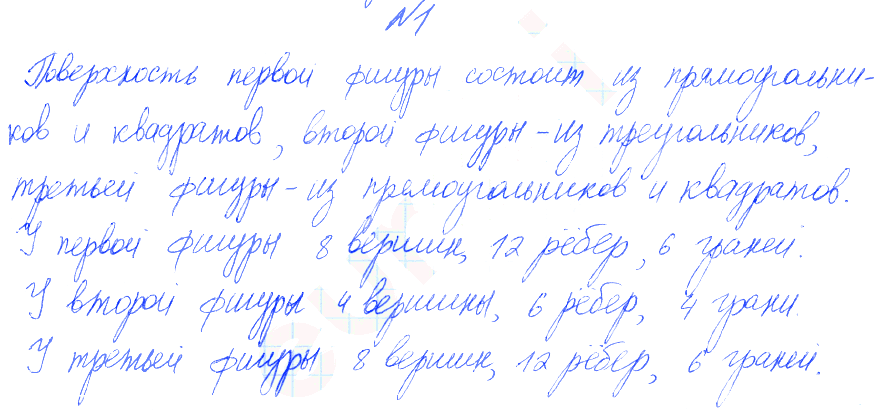 №1
Поверхность первой фигуры состоит из прямоугольни-
ков и квадратов, второй фигуры - из треугольников,
третьей фигуры - из прямоугольников и квадратов.
У первой фигуры 8 вершин, 12 рёбер, 6 граней.
У второй фигуры 4 вершины, 6 рёбер, 4 грани.
У третьей фигуры 8 вершин, 12 рёбер, 6 граней.